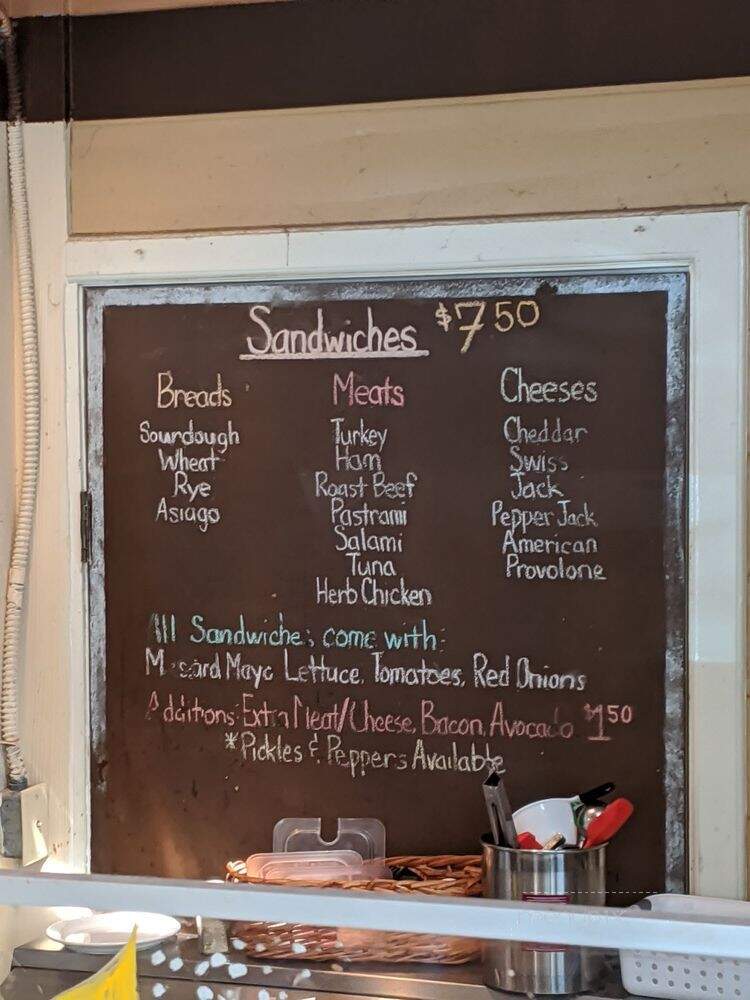 Sandwiches $7.50
Breads
Sourdough
Wheat
Rye
Asiago
Meats
Turkey
Ham
Roast Beef
Pastrami
Salami
Tuna
Herb Chicken
Cheeses
Cheddar
Swiss
Jack
Pepper Jack
American
Provolone
All Sandwiches come with:
Mustard Mayo Lettuce, Tomatoes, Red Onions
Additions: Extra Meat/Cheese, Bacon, Avocado $1.50
*Pickles & Peppers Available